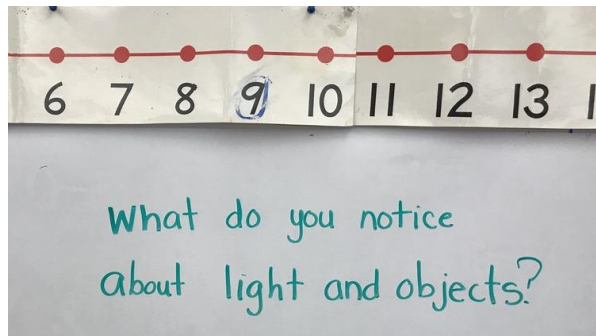 6 7 8 9 10 11 12 13
What do you notice
about light and objects?